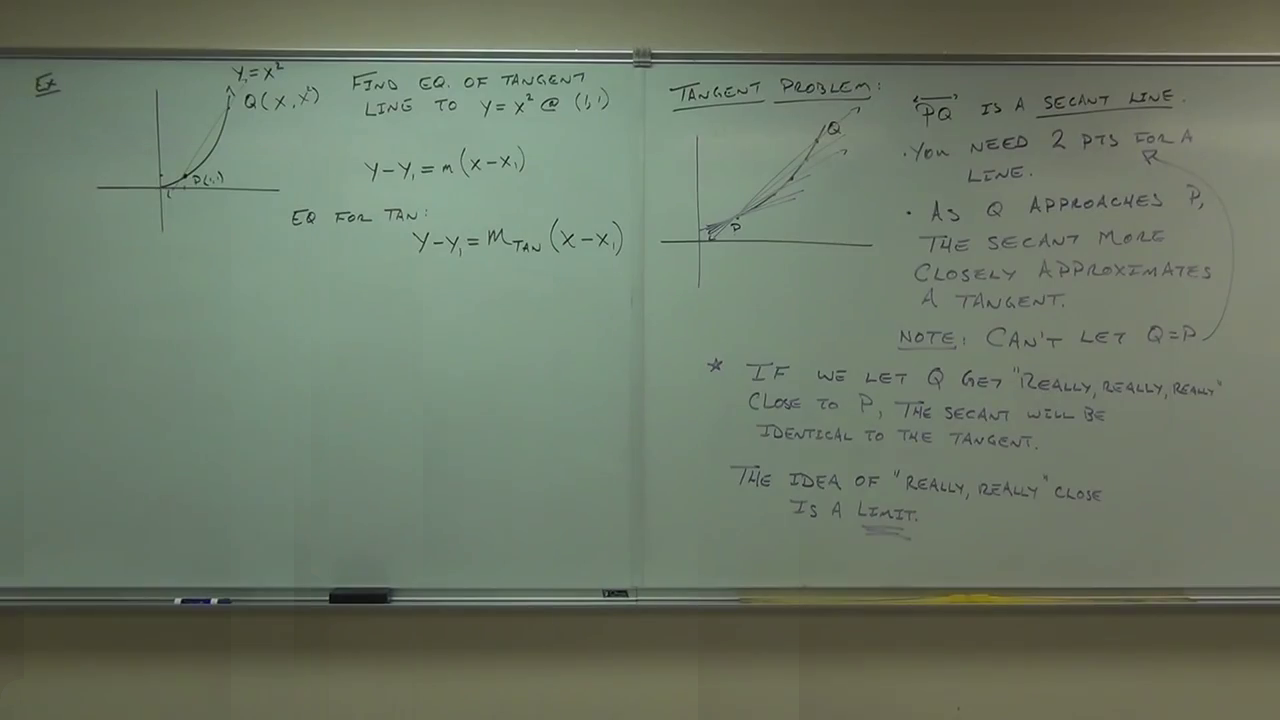 Ex
y₁ = x²
Q(x, x²)
P(1,1)
FIND EQ. OF TANGENT
LINE TO Y = X² @ (1,1)
Y-Y₁ = m(X-X₁)
EQ FOR TAN:
Y-Y₁ = M_TAN (X-X₁)
TANGENT PROBLEM:
Q
P
"PQ" IS A SECANT LINE.
• YOU NEED 2 PTS FOR A
LINE.
• AS Q APPROACHES P,
THE SECANT MORE
CLOSELY APPROXIMATES
A TANGENT.
NOTE: CAN'T LET Q=P
* IF WE LET Q GET "REALLY, REALLY, REALLY"
CLOSE TO P, THE SECANT WILL BE
IDENTICAL TO THE TANGENT.
THE IDEA OF "REALLY, REALLY" CLOSE
IS A LIMIT.